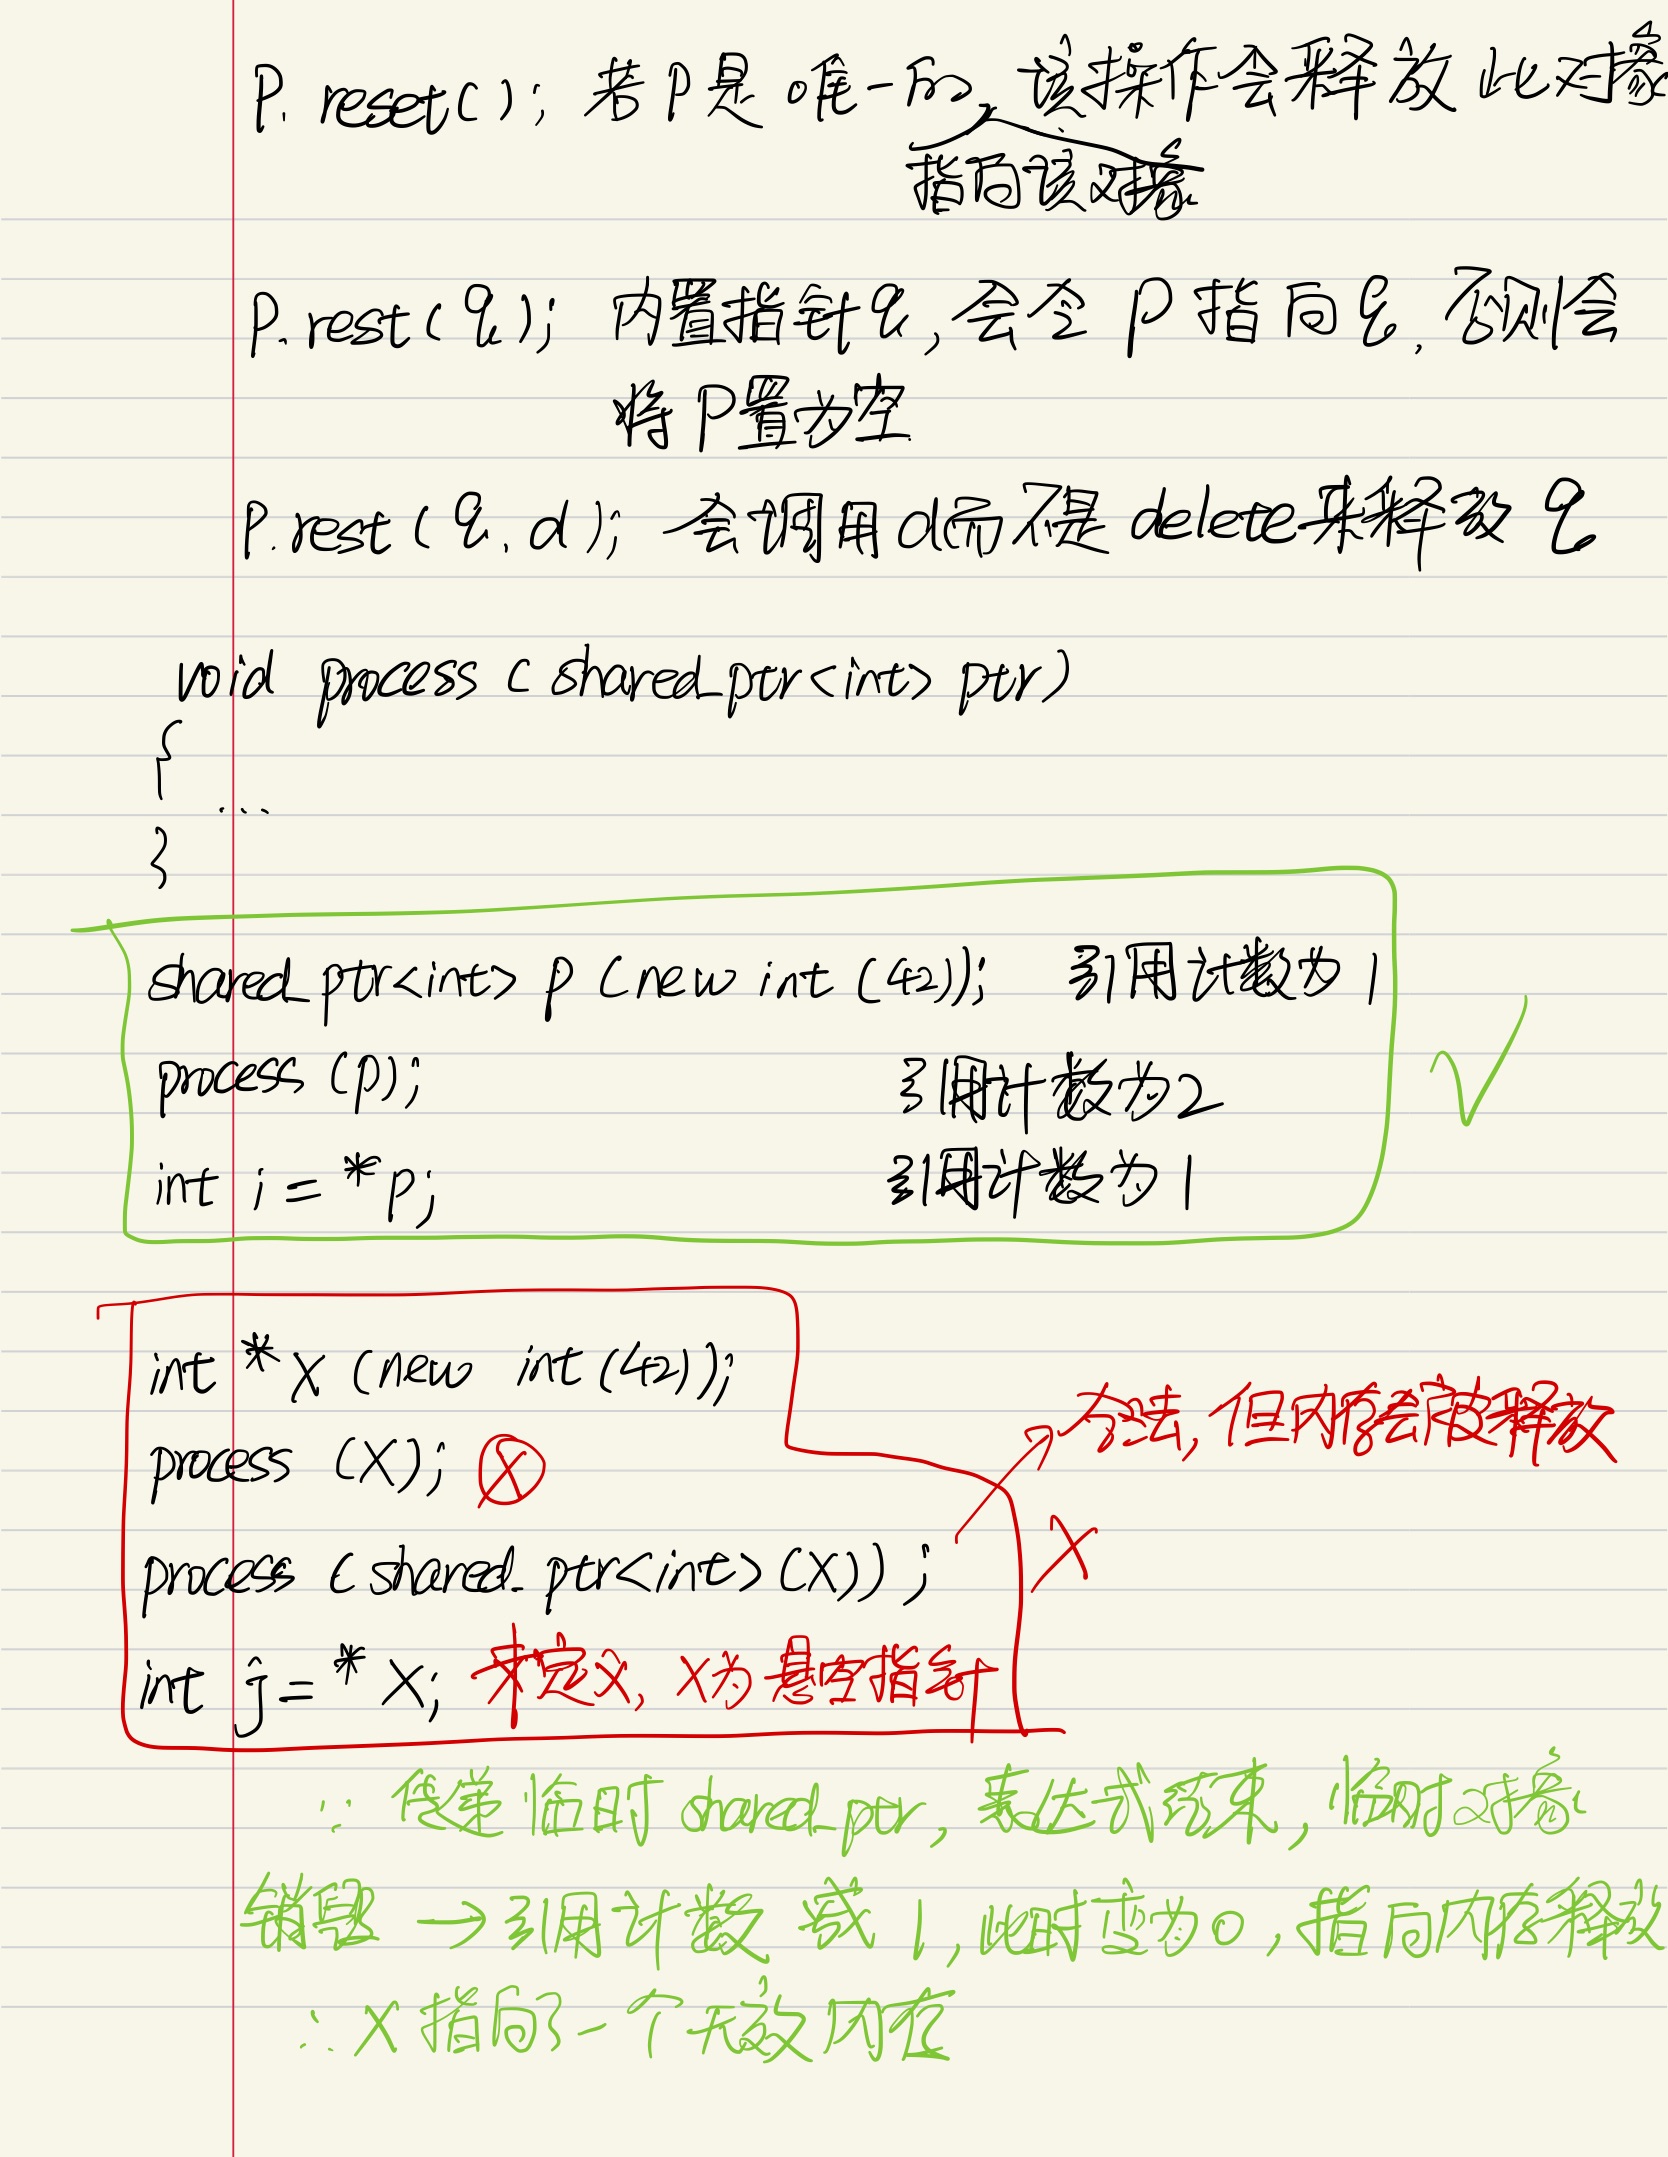 P. reset(); 若P是唯一的,该操作会释放此对象
指向该对象
P.rest(q); 内置指针q,会令P指向q,否则会
将P置为空
P.rest(q,d); 会调用d而不是delete来释放q
void process(shared_ptr<int> ptr)
{
...
}
shared_ptr<int> p(new int(42)); 引用计数为1
process(p); 引用计数为2
int i = *p; 引用计数为1
int *X(new int(42));
process (X);
合法,但内存会被释放
process(shared_ptr<int>(X));
X
int j = *X; 未定义,X为悬空指针
∵ 传递临时shared_ptr,表达式结束,临时对象
销毁→引用计数减1,此时变为0,指向内存释放
∴X指向了一个无效内存